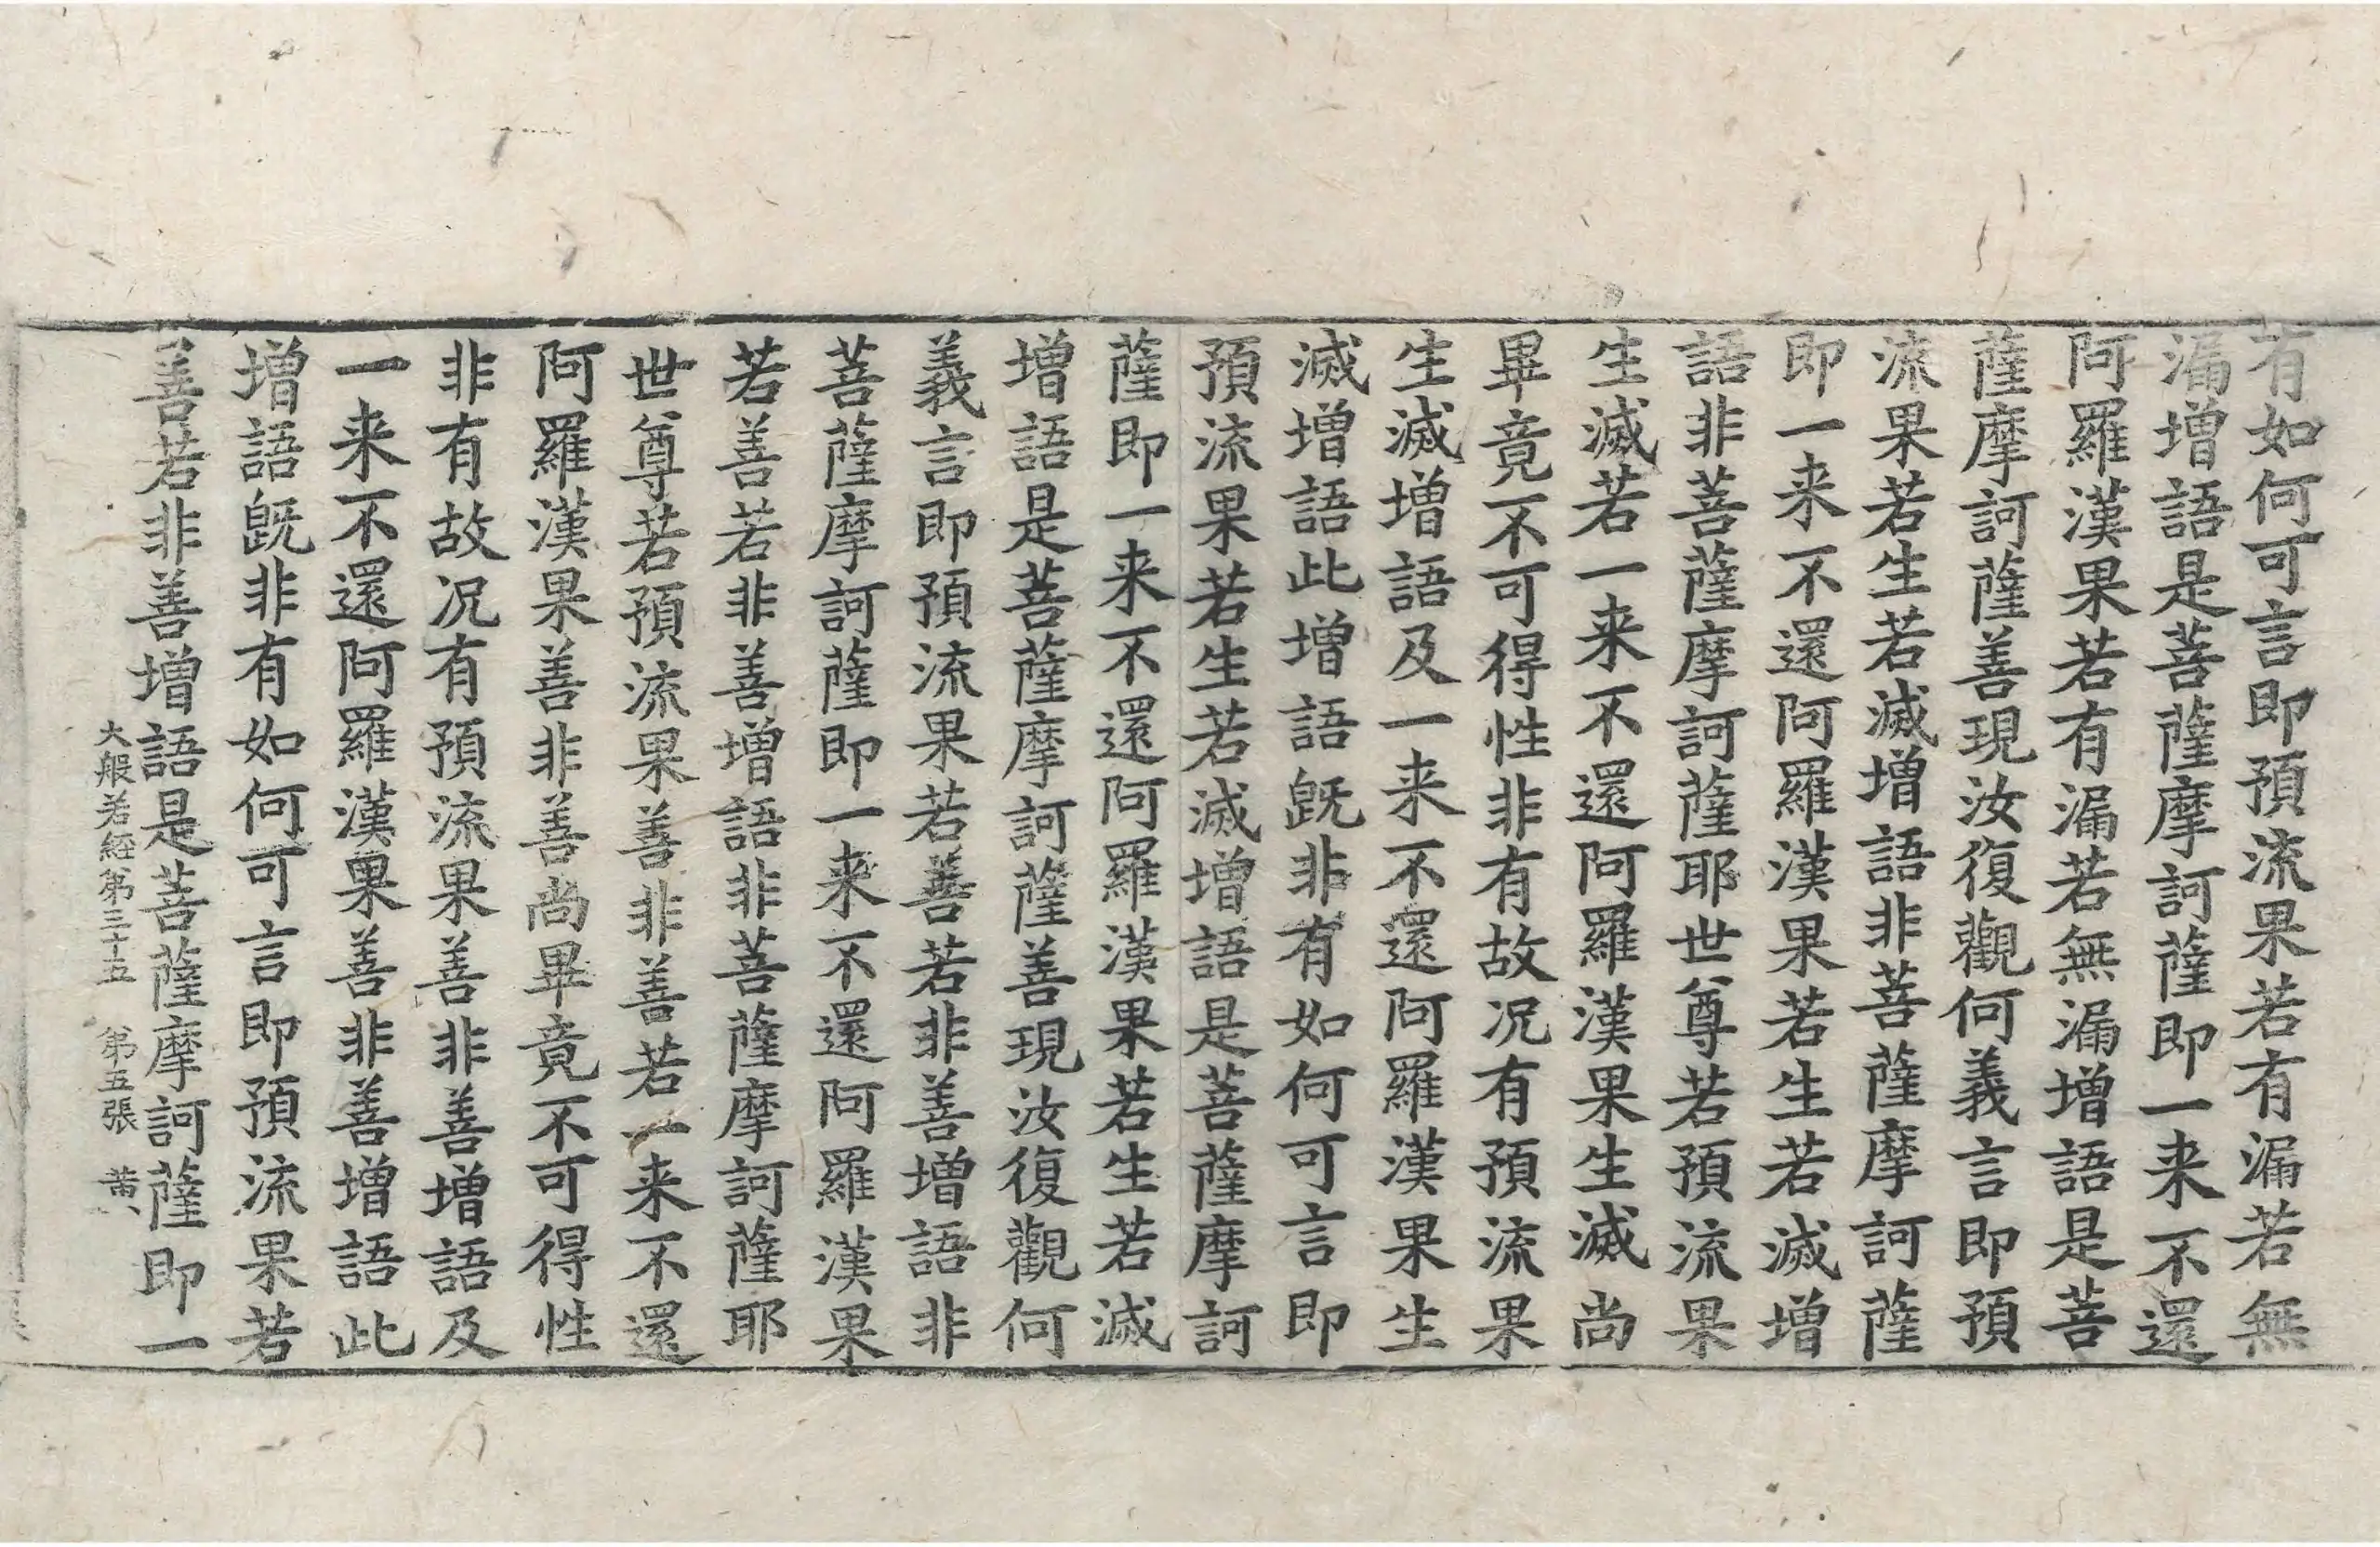 有如何可言即預流果若有漏若無
漏增語是菩薩摩訶薩即一来不還
阿羅漢果若有漏若無漏增語是菩
薩摩訶薩善現汝復觀何義言即預
流果若生若滅增語非菩薩摩訶薩
即一来不還阿羅漢果若生若滅增
語非菩薩摩訶薩耶世尊若預流果
生滅若一来不還阿羅漢果生滅尚
畢竟不可得性非有故况有預流果
生滅增語及一来不還阿羅漢果生
滅增語此增語旣非有如何可言即
預流果若生若滅增語是菩薩摩訶
薩即一来不還阿羅漢果若生若滅
增語是菩薩摩訶薩善現汝復觀何
義言即預流果若善若非善增語非
菩薩摩訶薩即一来不還阿羅漢果
若善若非善增語非菩薩摩訶薩耶
世尊若預流果善非善若一来不還
阿羅漢果善非善尚畢竟不可得性
非有故况有預流果善非善增語及
一来不還阿羅漢果善非善增語此
增語旣非有如何可言即預流果若
善若非善增語是菩薩摩訶薩即一
大般若經第三十五 第五張 黃